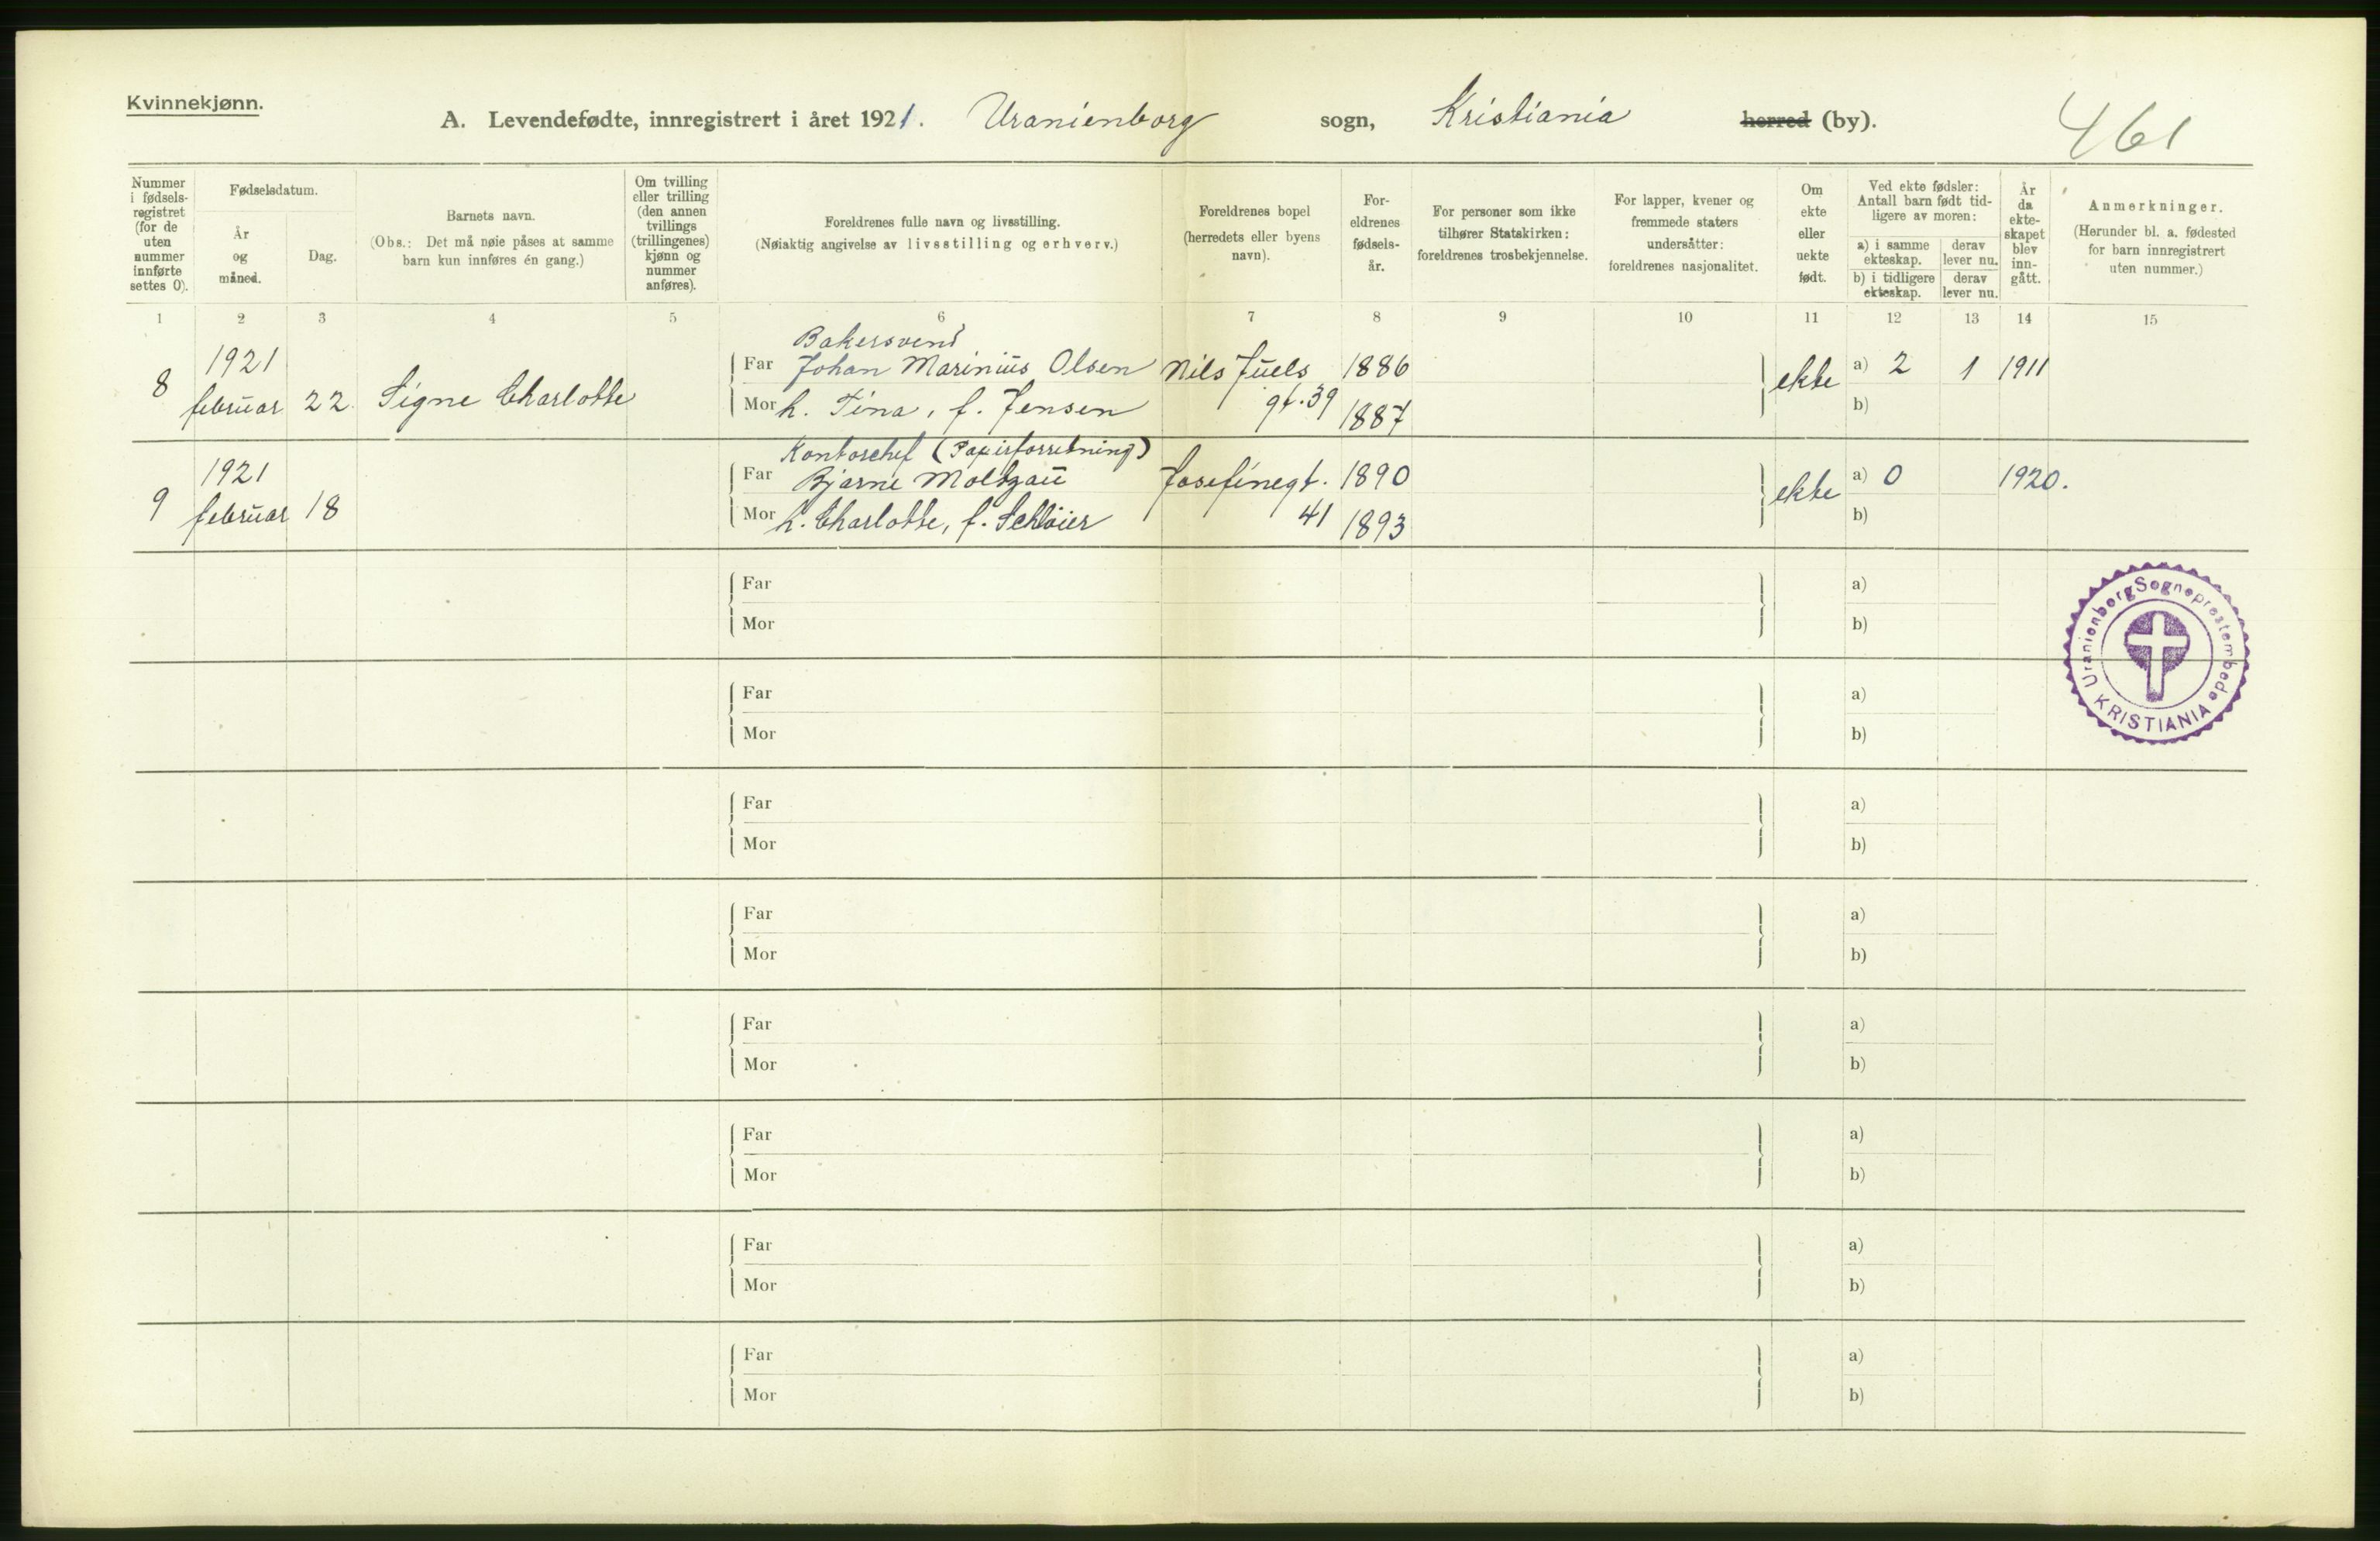 Kvinnekjønn.
A. Levendefødte, innregistrert i året 1921. Uranienborg sogn, Kristiania herred (by).
461
Nummer i fødsels-registret (for de uten nummer innførte settes 0).
Fødselsdatum.
År og måned.
Dag.
Barnets navn.
(Obs.: Det må nøie påses at samme barn kun innføres én gang.)
Om tvilling eller trilling (den annen tvillings (trillingenes) kjønn og nummer anføres).
Foreldrenes fulle navn og livsstilling.
(Nøiaktig angivelse av livsstilling og erhverv.)
Foreldrenes bopel (herredets eller byens navn).
For-eldrenes fødsels-år.
For personer som ikke tilhører Statskirken: foreldrenes trosbekjennelse.
For lapper, kvener og fremmede staters undersåtter: foreldrenes nasjonalitet.
Om ekte eller uekte født.
Ved ekte fødsler: Antall barn født tid-ligere av moren:
a) i samme ekteskap.
derav lever nu.
b) i tidligere ekteskap.
derav lever nu.
År da ekte-skapet blev inn-gått.
Anmerkninger.
(Herunder bl. a. fødested for barn innregistrert uten nummer.)
1 2 3 4 5 6 7 8 9 10 11 12 13 14 15
Bakersvend
8 1921 februar 22. Signe Charlotte
Far Johan Marinius Olsen Nils Juels 1886 ekte a) 2 1 1911
Mor h. Tina, f. Jensen gt. 39 1887 b)
Kontorchef (Papirforretning)
9 1921 februar 18
Far Bjarne Moltzau Josefinegt. 1890 ekte a) 0 1920.
Mor h. Charlotte, f. Schlöier 41 1893 b)
Far a)
Mor b)
Uranienborg Sogneprestembede KRISTIANIA
Far a)
Mor b)
Far a)
Mor b)
Far a)
Mor b)
Far a)
Mor b)
Far a)
Mor b)
Far a)
Mor b)
Far a)
Mor b)